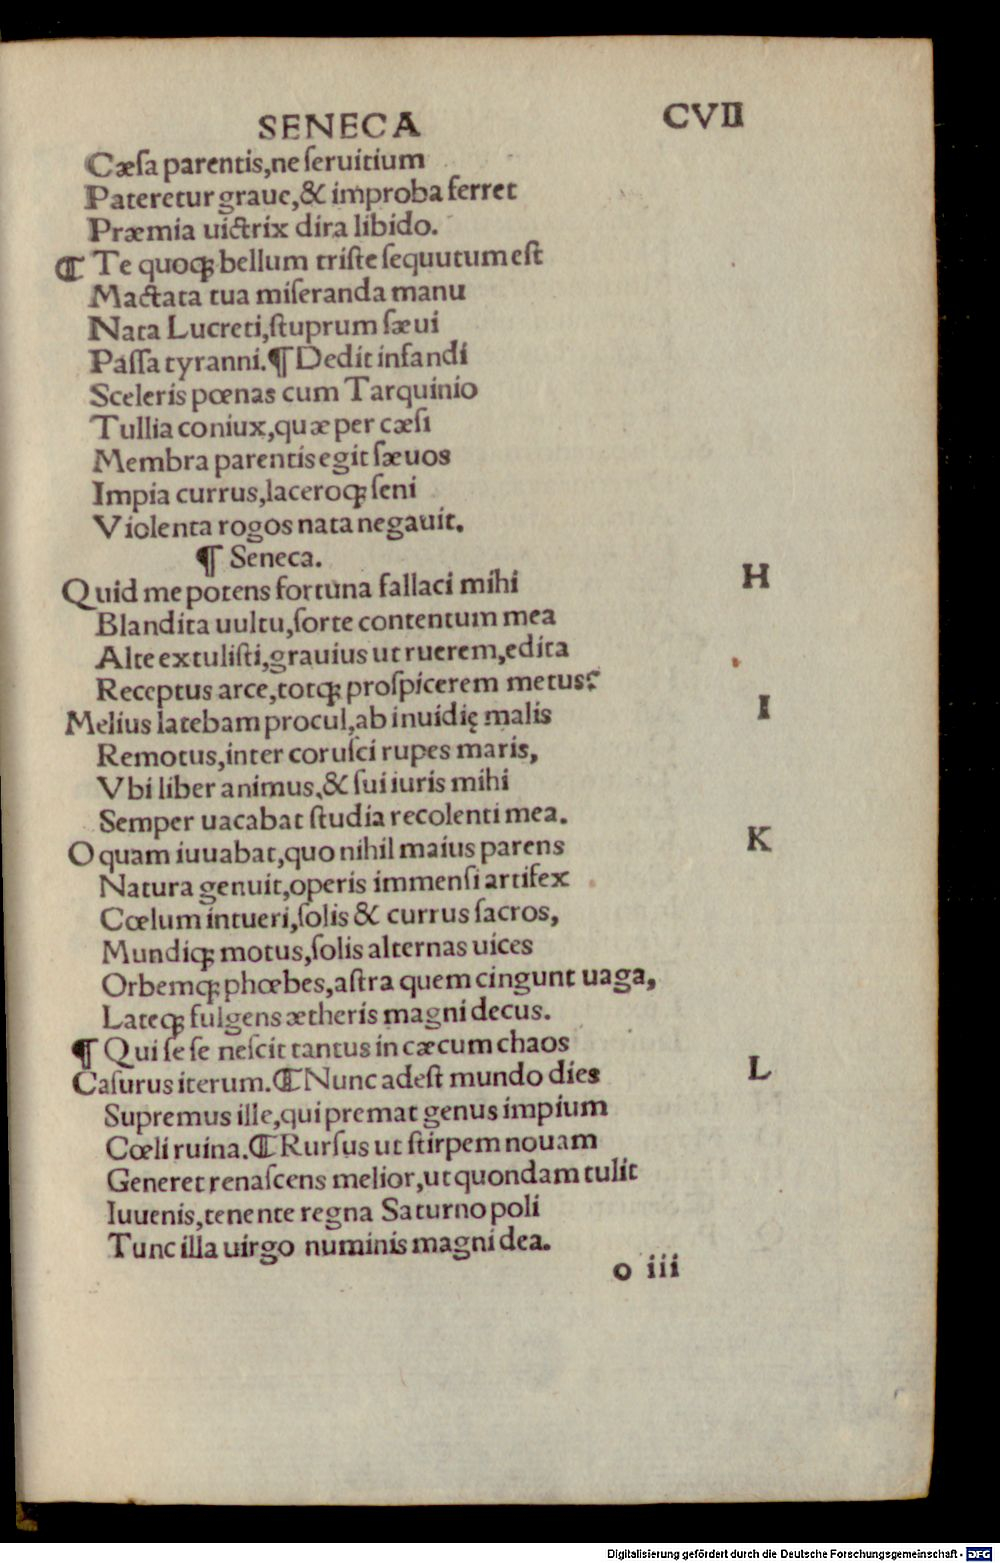 SENECA CVII
Cæſa parentis,ne ſeruitium
Pateretur graue,& improba ferret
Præmia uictrix dira libido.
⸿ Te quoqꝫ bellum triſte ſequutum eſt
Mactata tua miſeranda manu
Nata Lucreti,ſtuprum ſæui
Paſſa tyranni.¶ Dedit infandi
Sceleris pœnas cum Tarquinio
Tullia coniux,quæ per cæſi
Membra parentis egit ſæuos
Impia currus,laceroqꝫ ſeni
Violenta rogos nata negauit.
¶ Seneca.
Quid me potens fortuna fallaci mihi H
Blandita uultu,ſorte contentum mea
Alte extuliſti,grauius ut ruerem,edita
Receptus arce,totqꝫ proſpicerem metus?
Melius latebam procul,ab inuidię malis I
Remotus,inter coruſci rupes maris,
Vbi liber animus,& ſui iuris mihi
Semper uacabat ſtudia recolenti mea.
O quam iuuabat,quo nihil maius parens K
Natura genuit,operis immenſi artifex
Cœlum intueri,ſolis & currus ſacros,
Mundiqꝫ motus,ſolis alternas uices
Orbemqꝫ phœbes,aſtra quem cingunt uaga,
Lateqꝫ fulgens ætheris magni decus.
¶ Qui ſe ſe neſcit tantus in cæcum chaos
Caſurus iterum.⸿ Nunc adeſt mundo dies L
Supremus ille,qui premat genus impium
Cœli ruina.⸿ Rurſus ut ſtirpem nouam
Generet renaſcens melior,ut quondam tulit
Iuuenis,tenente regna Saturno poli
Tunc illa uirgo numinis magni dea.
o iii
Digitalisierung gefördert durch die Deutsche Forschungsgemeinschaft - DFG